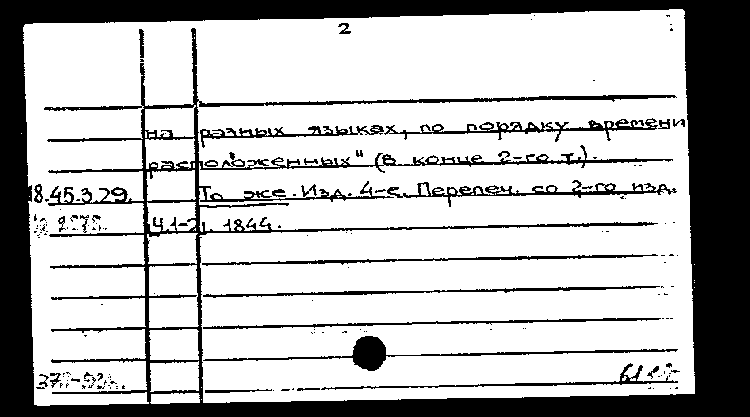 2
на разных языках, по порядку времени
расположенных" (в конце 2-го т.).
18.45.3.29. То же. Изд. 4-е. Перепеч. со 2-го изд.
Ч.1-2. 1844.